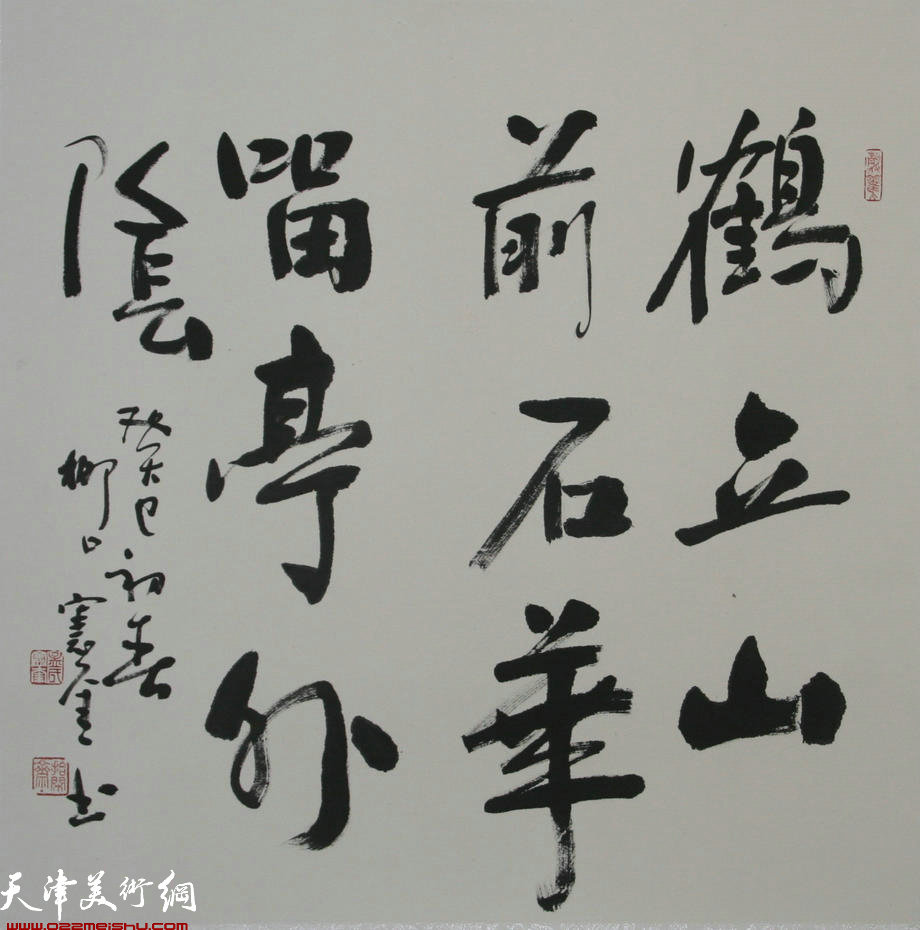 鶴立山
前石華
留亭外
陰
癸巳初春
柳口憲金书
天津美術網
www.022meishu.com